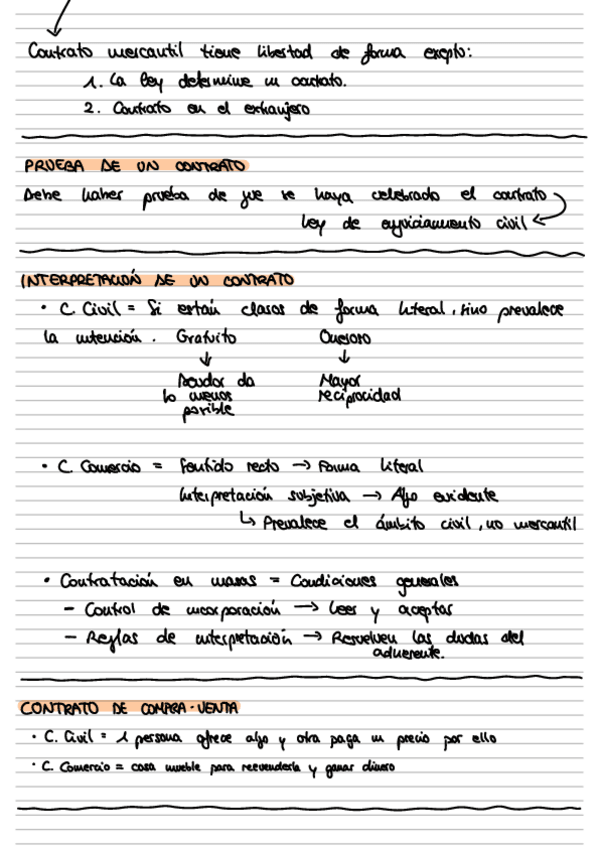 Contrato mercantil tiene libertad de forma expto:
1. La ley determine un contrato.
2. Contrato en el extranjero
PRUEBA DE UN CONTRATO
Debe haber prueba de que se haya celebrado el contrato
ley de enjuiciamiento civil
INTERPRETACIÓN DE UN CONTRATO
• C. Civil = Si están claros de forma literal, sino prevalece
la intención. Gratuito Oneroso
↓ ↓
Deudor da Mayor
lo menos reciprocidad
posible
• C. Comercio = Sentido recto → Forma literal
Interpretación subjetiva → Algo evidente
↳ Prevalece el ámbito civil, no mercantil
• Contratación en masas = Condiciones generales
- Control de incorporación → leer y aceptar
- Reglas de interpretación → Resuelven las dudas del
adherente.
CONTRATO DE COMPRA-VENTA
• C. Civil = 1 persona ofrece algo y otra paga un precio por ello
• C. Comercio = cosa mueble para reevenderla y ganar dinero